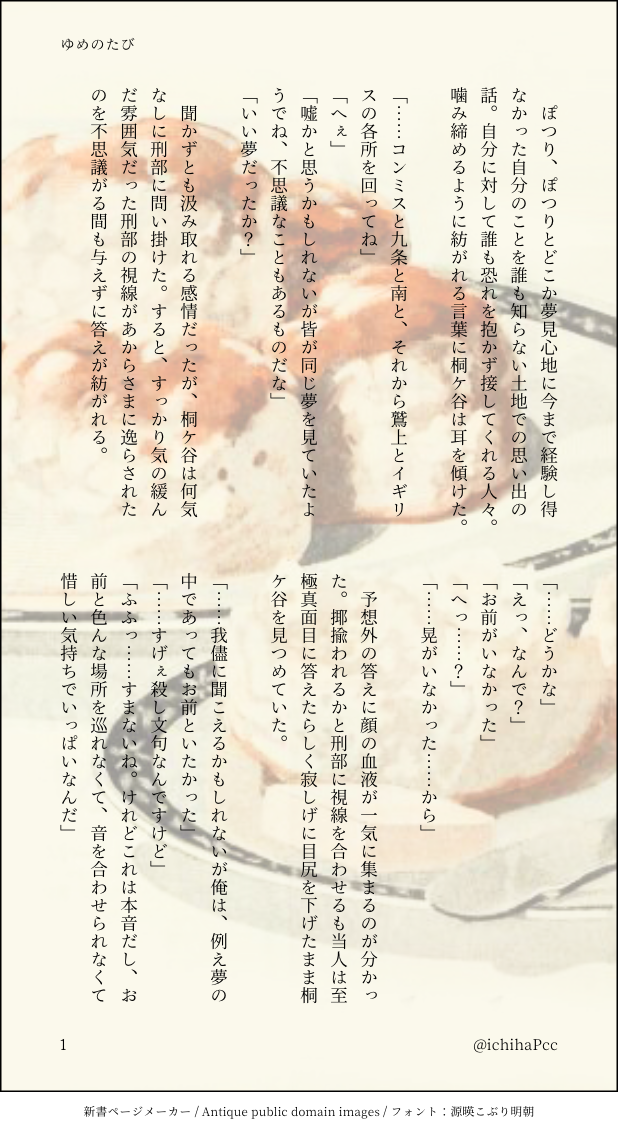 ゆめのたび
　ぽつり、ぽつりとどこか夢見心地に今まで経験し得
なかった自分のことを誰も知らない土地での思い出の
話。自分に対して誰も恐れを抱かず接してくれる人々。
噛み締めるように紡がれる言葉に桐ケ谷は耳を傾けた。
「……コンミスと九条と南と、それから鷲上とイギリ
スの各所を回ってね」
「へぇ」
「嘘かと思うかもしれないが皆が同じ夢を見ていたよ
うでね、不思議なこともあるものだな」
「いい夢だったか？」
　聞かずとも汲み取れる感情だったが、桐ケ谷は何気
なしに刑部に問い掛けた。すると、すっかり気の緩ん
だ雰囲気だった刑部の視線があからさまに逸らされた
のを不思議がる間も与えずに答えが紡がれる。
「……どうかな」
「えっ、なんで？」
「お前がいなかった」
「へっ……？」
「……晃がいなかった……から」
　予想外の答えに顔の血液が一気に集まるのが分かっ
た。揶揄われるかと刑部に視線を合わせるも当人は至
極真面目に答えたらしく寂しげに目尻を下げたまま桐
ケ谷を見つめていた。
「……我儘に聞こえるかもしれないが俺は、例え夢の
中であってもお前といたかった」
「……すげぇ殺し文句なんですけど」
「ふふっ……すまないね。けれどこれは本音だし、お
前と色んな場所を巡れなくて、音を合わせられなくて
惜しい気持ちでいっぱいなんだ」
1
@ichihaPcc
新書ページメーカー / Antique public domain images / フォント：源暎こぶり明朝